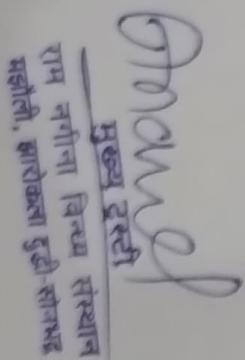 मुख्य ट्रस्टी
राम नगीना विन्ध्य संस्थान
मझौली, झारोकला दुद्धी-सोनभद्र